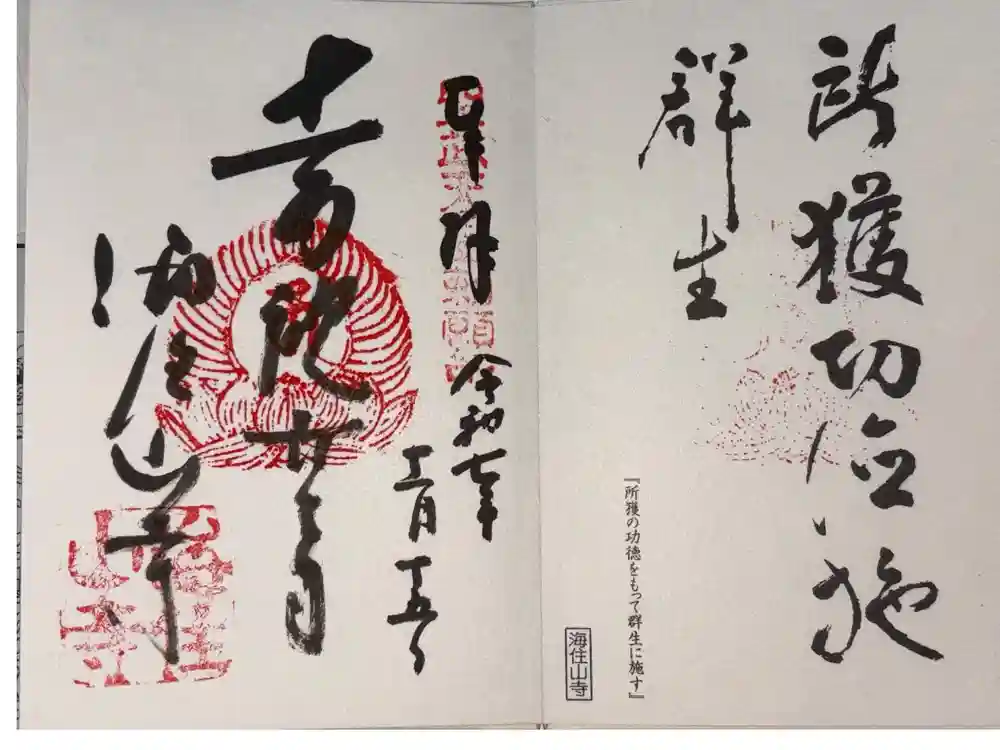 所獲功徳施
群生
『所獲の功徳をもって群生に施す』
海住山寺
奉拝 令和七年
十一月十五日
十一面観世音
海住山寺
海住山寺